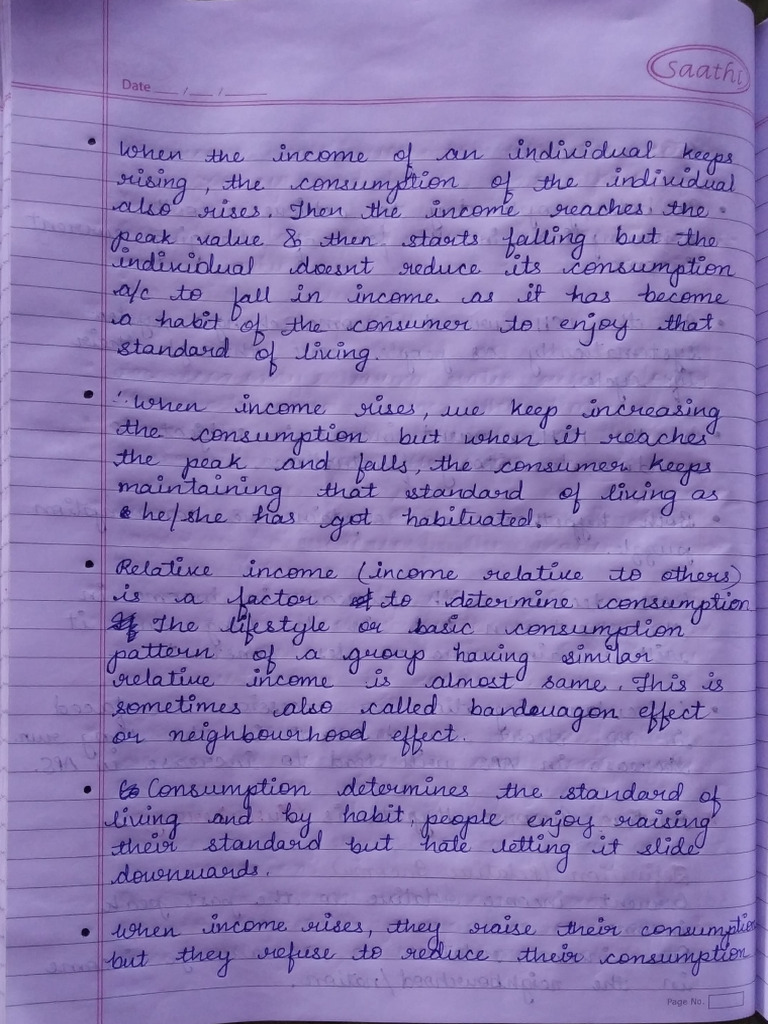 Saathi
Date __ / __ / ____
• When the income of an individual keeps
rising, the consumption of the individual
also rises. Then the income reaches the
peak value & then starts falling but the
individual doesnt reduce its consumption
a/c to fall in income as it has become
a habit of the consumer to enjoy that
standard of living.
• ∴ When income rises, we keep increasing
the consumption but when it reaches
the peak and falls, the consumer keeps
maintaining that standard of living as
he/she has got habituated.
• Relative income (income relative to others)
is a factor to determine consumption
The lifestyle or basic consumption
pattern of a group having similar
relative income is almost same. This is
sometimes also called bandwagon effect
or neighbourhood effect.
• Consumption determines the standard of
living and by habit, people enjoy raising
their standard but hate letting it slide
downwards.
• When income rises, they raise their consumption
but they refuse to reduce their consumption
Page No.